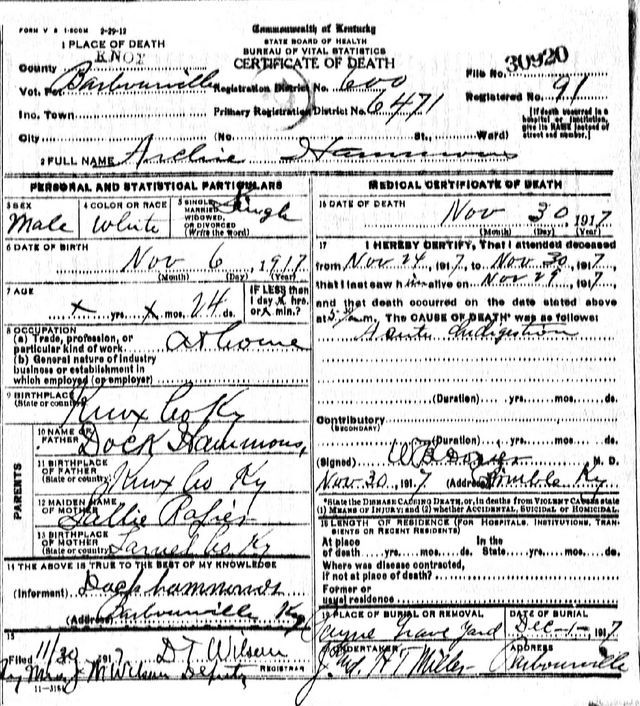 FORM V S 1-500M 2-29-12
Commonwealth of Kentucky
STATE BOARD OF HEALTH
BUREAU OF VITAL STATISTICS
CERTIFICATE OF DEATH
1 PLACE OF DEATH
County KNOX
File No. 30920
Vot. Pct. Barbourville Registration District No. 600
Registered No. 91
Inc. Town Primary Registration District No. 6471
[If death occurred in a hospital or institution, give its NAME instead of street and number.]
City (No. St., Ward)
2 FULL NAME Archie Hammons
PERSONAL AND STATISTICAL PARTICULARS
3 SEX Male
4 COLOR OR RACE White
5 SINGLE, MARRIED, WIDOWED, OR DIVORCED (Write the word) Single
6 DATE OF BIRTH
Nov 6, 1917
(Month) (Day) (Year)
7 AGE
x yrs. x mos. 24 ds.
IF LESS than 1 day x hrs. or x min.?
8 OCCUPATION
(a) Trade, profession, or particular kind of work at home
(b) General nature of industry business or establishment in which employed (or employer)
9 BIRTHPLACE (State or country) Knox Co Ky
PARENTS
10 NAME OF FATHER Dock Hammons,
11 BIRTHPLACE OF FATHER (State or country) Knox Co Ky
12 MAIDEN NAME OF MOTHER
13 BIRTHPLACE OF MOTHER (State or country) Laurel Co Ky
14 THE ABOVE IS TRUE TO THE BEST OF MY KNOWLEDGE
(Informant) Dock Hammons
(Address) Barbourville Ky
15
Filed 11/30 1917 D T Wilson
REGISTRAR
J M Wilson Deputy
11-3184
MEDICAL CERTIFICATE OF DEATH
16 DATE OF DEATH
Nov 30, 1917
(Month) (Day) (Year)
17 I HEREBY CERTIFY, That I attended deceased
from Nov 24, 1917, to Nov 30, 1917,
that I last saw him alive on Nov 29, 1917
and that death occurred on the date stated above
at 5 m. The CAUSE OF DEATH was as follows:
Acute Indigestion
(Duration) yrs. mos. ds.
Contributory
(SECONDARY)
(Duration) yrs. mos. ds.
(Signed) M. D.
Nov 30, 1917 (Address) Ky
*State the DISEASE CAUSING DEATH, or, in deaths from VIOLENT CAUSES state (1) MEANS OF INJURY; and (2) whether ACCIDENTAL, SUICIDAL or HOMICIDAL
18 LENGTH OF RESIDENCE (FOR HOSPITALS, INSTITUTIONS, TRANSIENTS OR RECENT RESIDENTS)
At place of death yrs. mos. ds. In the State yrs. mos. ds.
Where was disease contracted, if not at place of death?
Former or usual residence
19 PLACE OF BURIAL OR REMOVAL
Payne Grave Yard
DATE OF BURIAL
Dec-1-, 1917
UNDERTAKER
H T Miller
ADDRESS
Barbourville